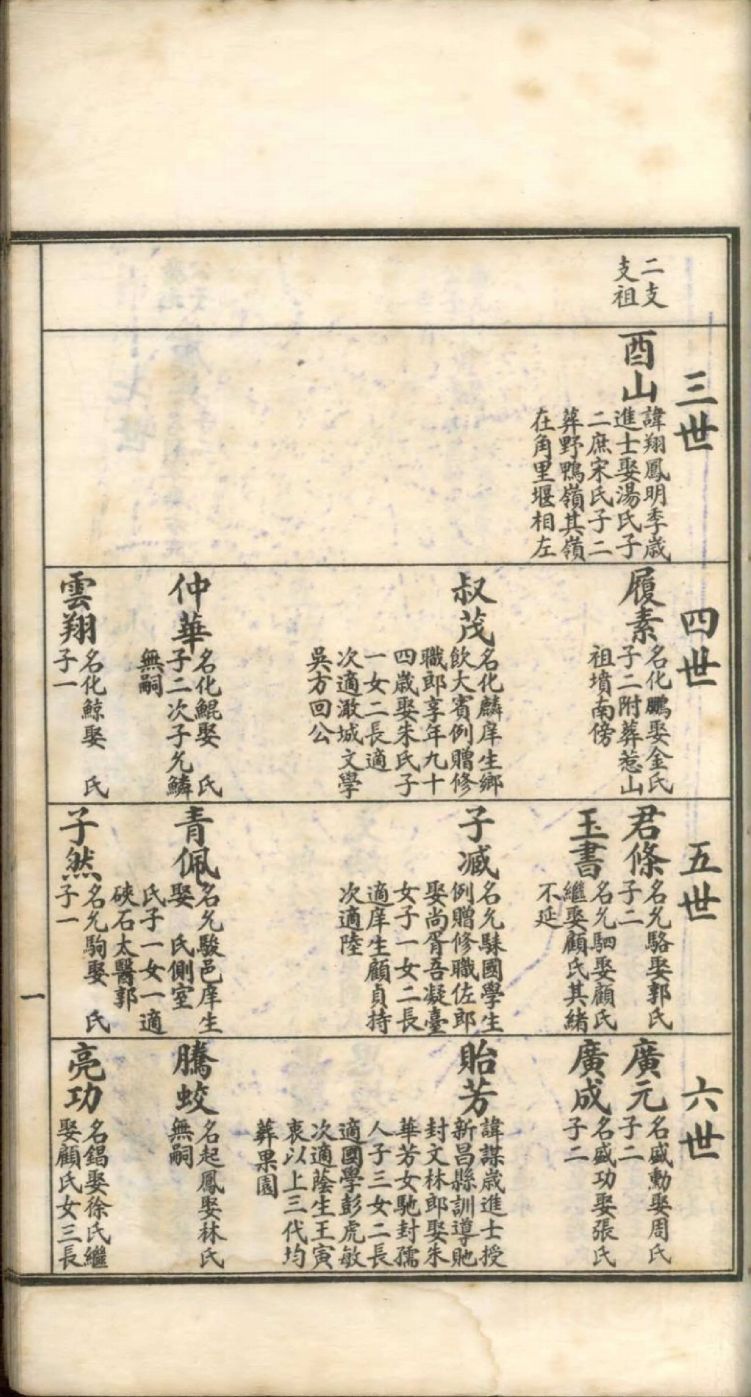 二支
支祖
三世
酉山
諱翔鳳明季歲
進士娶湯氏子
二庶宋氏子二
葬野鴨嶺其嶺
在角里堰相左
四世
履素
名化鵬娶金氏
子二附葬惹山
祖墳南傍
叔茂
名化麟庠生鄉
飲大賓例贈修
職郎享年九十
四歲娶朱氏子
一女二長適
次適澉城文學
吳方回公
仲華
名化鯤娶 氏
子二次子允鱗
無嗣
雲翔
名化鯨娶 氏
子一
五世
君條
名允駱娶郭氏
子二
玉書
名允駟娶顧氏
繼娶顧氏其緒
不延
子臧
名允駼國學生
例贈修職佐郎
娶尚胥吾凝臺
女子一女二長
適庠生顧貞持
次適陸
青佩
名允駿邑庠生
娶 氏側室
氏子一女一適
硤石太醫郭
子然
名允駒娶 氏
子一
六世
廣元
名盛勳娶周氏
子二
廣成
名盛功娶張氏
子二
貽芳
諱謀歲進士授
新昌縣訓導貤
封文林郎娶朱
華芳女馳封孺
人子三女二長
適國學彭虎敏
次適蔭生王寅
衷以上三代均
葬果園
騰蛟
名起鳳娶林氏
無嗣
亮功
名錩娶徐氏繼
娶顧氏女三長
一